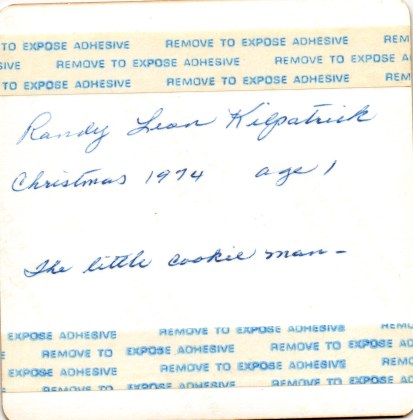 TO EXPOSE ADHESIVE REMOVE TO EXPOSE ADHESIVE REM
SIVE REMOVE TO EXPOSE ADHESIVE REMOVE TO EXPOS
TO EXPOSE ADHESIVE REMOVE TO EXPOSE ADHESIVE REM
Randy Leon Kilpatrick
Christmas 1974 age 1
The little cookie man-
EXPOSE ADHESIVE REMOVE TO EXPOSE ADHESIVE REMO
REMOVE TO EXPOSE ADHESIVE REMOVE TO EXPOSE AD
EXPOSE ADHESIVE REMOVE TO EXPOSE ADHESIVE REMO
REMOVE TO EXPOSE ADHESIVE REMOVE TO EXPOSE AD